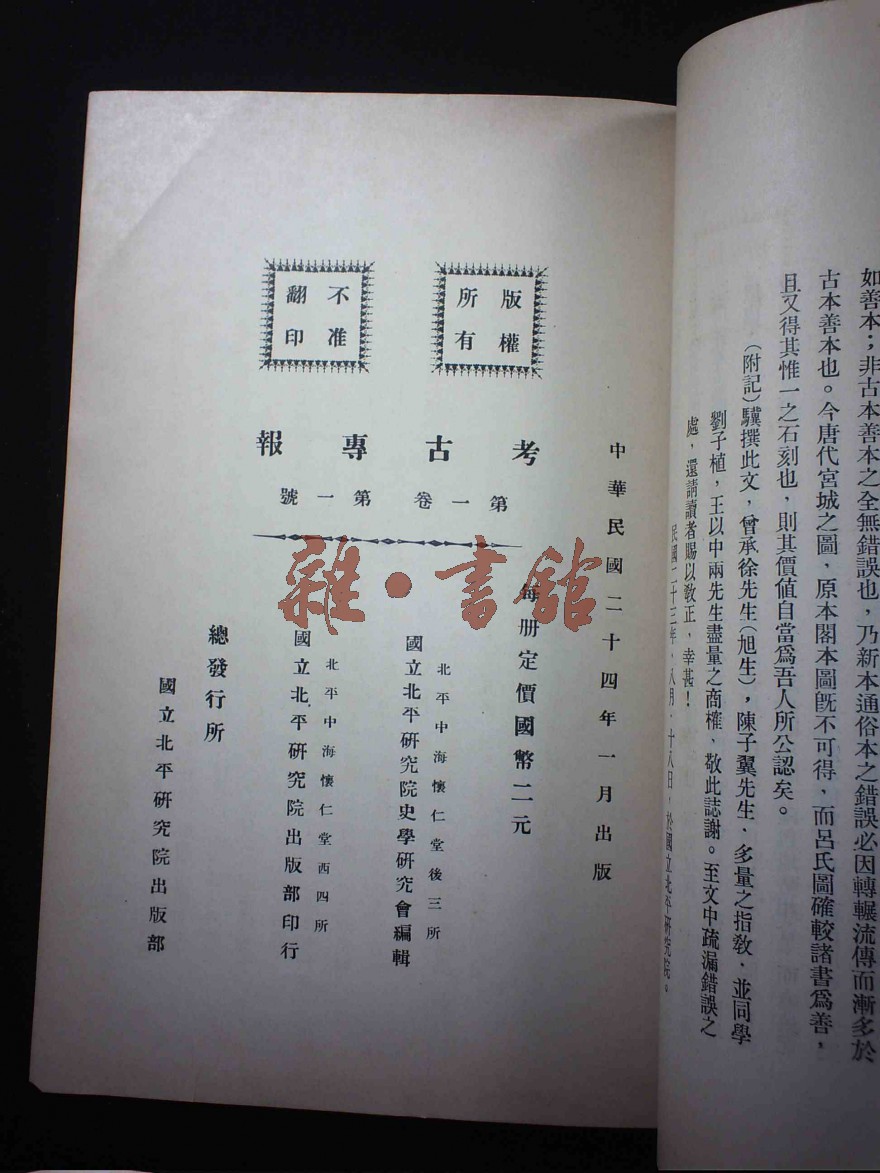 如善本；非古本善本之全無錯誤也，乃新本通俗本之錯誤必因轉輾流傳而漸多於
古本善本也。今唐代宮城之圖，原本閣本圖旣不可得，而呂氏圖確較諸書爲善，
且又得其惟一之石刻也，則其價值自當爲吾人所公認矣。
（附記）驥撰此文，曾承徐先生（旭生），陳子翼先生，多量之指敎，並同學
劉子植，王以中兩先生盡量之商榷，敬此誌謝。至文中疏漏錯誤之
處，還請讀者賜以敎正，幸甚！
民國二十三年，八月，十八日，於國立北平研究院。
版權
所有
不准
翻印
考古專報
第一卷 第一號
中華民國二十四年一月出版
每册定價國幣二元
北平中海懷仁堂後三所
國立北平研究院史學研究會編輯
北平中海懷仁堂西四所
國立北平研究院出版部印行
總發行所
國立北平研究院出版部
雜·書館